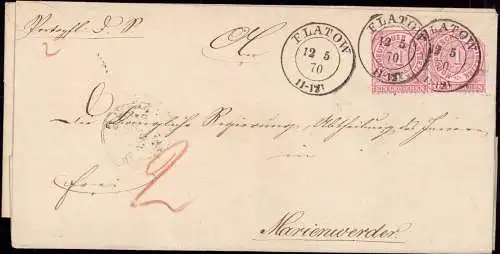 Portopfl. D. S.
2
An
FLATOW
12 5
70
11-12
FLATOW
12 5
70
11-12
EIN GROSCHEN
Die Königliche Regierung, Abtheilung des Innern
in
frei
2
Marienwerder